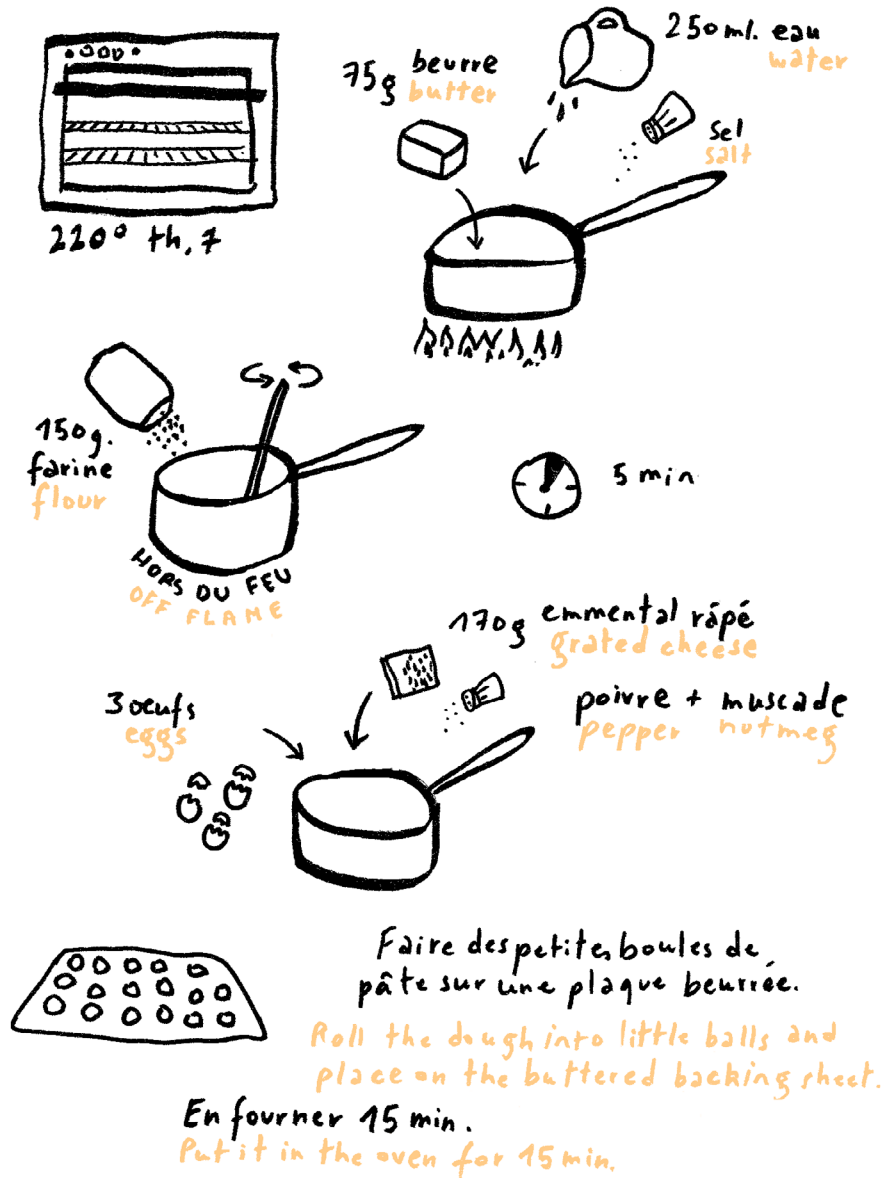 220° th.7
75g beurre
butter
250ml. eau
water
sel
salt
150g.
farine
flour
HORS DU FEU
OFF FLAME
5 min
170g emmental râpé
grated cheese
3 oeufs
eggs
poivre + muscade
pepper nutmeg
Faire des petites boules de
pâte sur une plaque beurrée.
Roll the dough into little balls and
place on the buttered backing sheet.
En fourner 15 min.
Put it in the oven for 15 min.